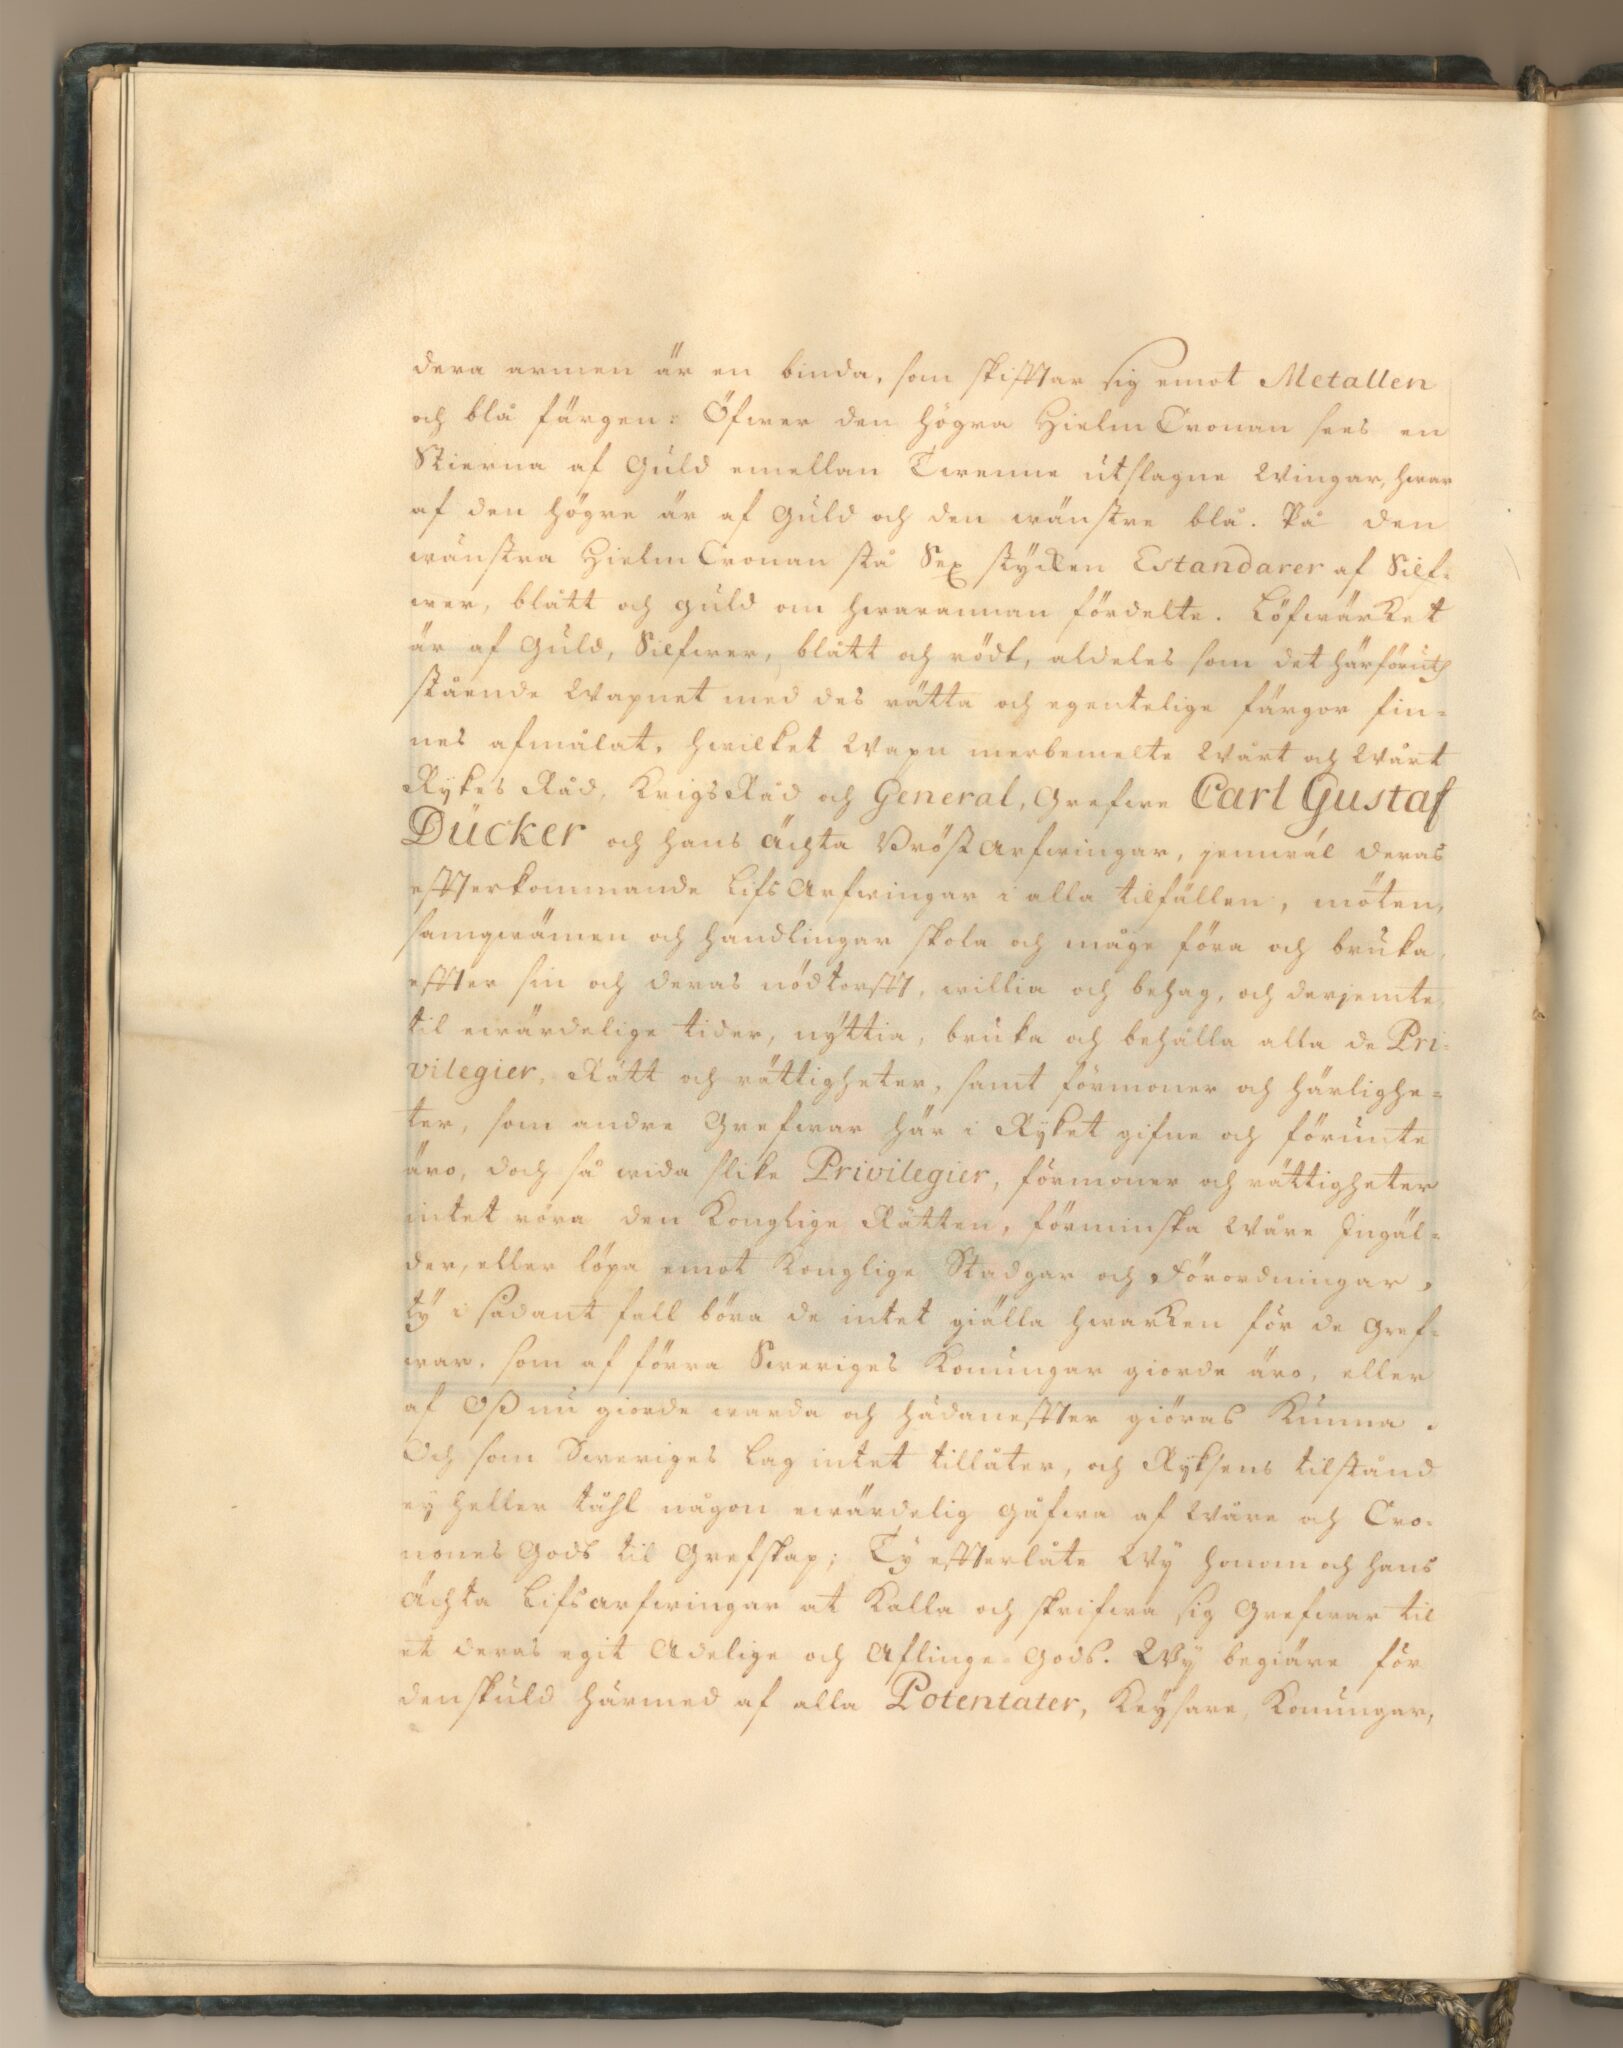 dera armen är en binda, som skifftar sig emot Metallen
och blå färgen: Öfwer den högra Hielm Cronan sees en
Stierna af Guld emellan Twenne utslagne Wingar, hwar
af den högre är af Guld och den wänstre blå. På den
wänstra Hielm Cronan stå Sex stycken Estandarer af Silf-
wer, blått och guld om hwarannan fördelte. Löfwärket
är af Guld, Silfwer, blått och rödt, aldeles som det härföruth
stående Wapnet med des rätta och egentelige färgor fin-
nes afmålat, hwilket Wapn merbemelte Wårt och Wårt
Rykes Råd, Krigs Råd och General, Grefwe Carl Gustaf
Dücker och hans ächta Bröst Arfwingar, jemwäl deras
effterkommande Lifs Arfwingar i alla tilfällen, möten,
samqwämen och handlingar skola och måge föra och bruka,
effter sin och deras nödtorfft, willia och behag, och derjemte,
til ewärdelige tider, nyttia, bruka och behålla alla de Pri-
vilegier, Rätt och rättigheter, samt förmoner och härlighe-
ter, som andre Grefwar här i Ryket gifne och förunte
äro, doch så wida slike Privilegier, förmoner och rättigheter
intet röra den Konglige Rätten, förminska Wåre Ingäl-
der, eller löpa emot Konglige Stadgar och Förordningar,
ty i sådant fall böra de intet giälla hwarken för de Gref-
war, som af förra Sweriges Konungar giorde äro, eller
af Oß nu giorde warda och hädaneffter giöras kunna.
Och som Sweriges Lag intet tillåter, och Ryksens tilstånd
ey heller tåhl någon ewärdelig gåfwa af Wåre och Cro-
nones Gods til Grefskap; Ty effterlåte Wy honom och hans
ächta Lifsarfwingar at Kalla och skrifwa sig Grefwar til
et deras egit Adelige och Aflinge Gods. Wy begiäre för
denskuld härmed af alla Potentater, Keysare, Konungar,